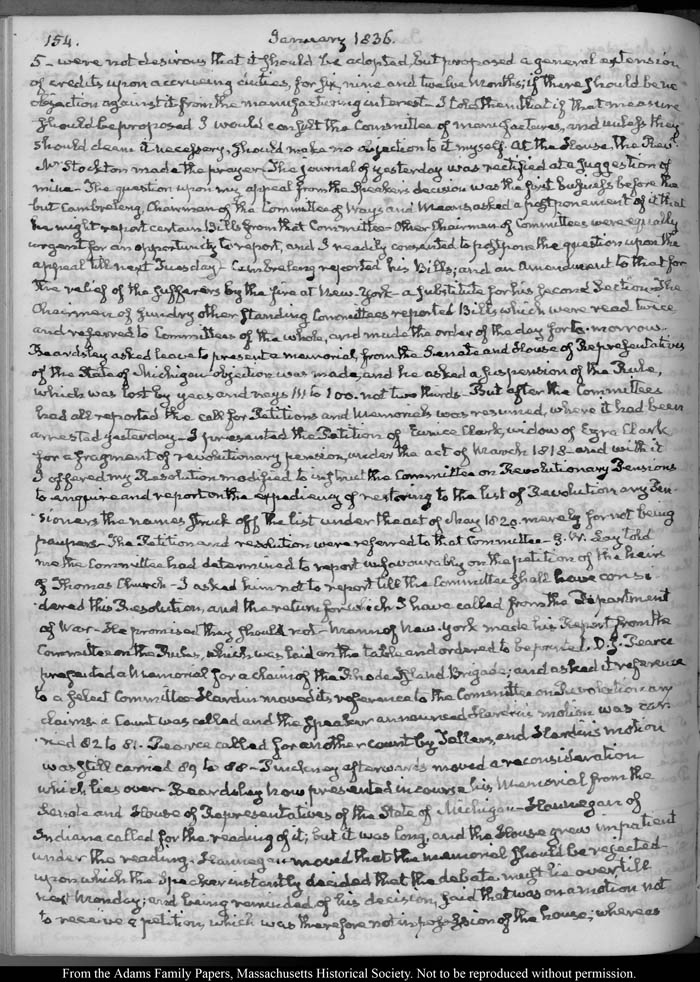 154.
January 1836.
5 – were not desirous that it should be adopted, but proposed a general extension
of credits upon accrueing duties, for six, nine and twelve months; if there should be no
objection against it from the manufacturing interest – I told them that if that measure
should be proposed I would consult the Committee of manufactures, and unless they
should deem it necessary, should make no objection to it myself. At the House, the Revd.
Mr Stockton made the prayer – The journal of yesterday was rectified at a suggestion of
mine – The question upon my appeal from the Speakers decision was the first business before the
but Cambreleng, Chairman of the Committee of Ways and Means asked a postponement of it that
he might report certain Bills from that Committee – Other Chairmen of Committees were equally
urgent for an opportunity to report, and I readily consented to postpone the question upon the
appeal till next Tuesday – Cambreleng reported his Bills; and an Amendment to that for
the relief of the sufferers by the fire at New-York – a substitute for his second Section – The
Chairmen of sundry other standing Committees reported Bills which were read twice
and referred to Committees of the whole, and made the order of the day for to-morrow.
Beardsley asked leave to present a memorial, from the Senate and House of Representatives
of the State of Michigan – objection was made, and he asked a suspension of the Rule,
which was lost by yeas and nays 111 to 100. not two thirds – But after the Committees
had all reported the call for Petitions and Memorials was resumed, where it had been
arrested yesterday – I presented the Petition of Eunice Clark, widow of Ezra Clark
for a fragment of revolutionary pension, under the act of March 1818 – and with it
I offered my Resolution modified to instruct the Committee on Revolutionary Pensions
to enquire and report on the expediency of restoring to the list of Revolutionary Pen-
sioners the names struck off the list under the act of May 1820. merely for not being
paupers – The Petition and resolution were referred to that Committee – G. W. Lay told
me the Committee had determined to report unfavourably on the petition of the heirs
of Thomas Church – I asked him not to report till the Committee shall have consi-
dered this Resolution, and the return for which I have called from the Department
of War – He promised they should not – Mann of New-York made his Report from the
Committee on the Rules, which was laid on the table and ordered to be printed. D. J. Pearce
presented a Memorial for a claim of the Rhode Island Brigade; and asked it reference
to a select Committee – Hardin moved its reference to the Committee on Revolutionary
claims: a Count was called and the Speaker announced Hardin's motion was car-
ried 82 to 81. Pearce called for another count by Tellers, and Hardin's motion
was still carried 89 to 88 – Pinckney afterwards moved a reconsideration
which lies over – Beardsley now presented in course his Memorial from the
Senate and House of Representatives of the State of Michigan – Hannegan of
Indiana called for the reading of it; but it was long, and the House grew impatient
under the reading. Hannegan moved that the memorial should be rejected –
upon which the Speaker instantly decided that the debate must lie over till
next Monday; and being reminded of his decision, said that was on a motion not
to receive a petition, which was therefore not in possession of the house; whereas
From the Adams Family Papers, Massachusetts Historical Society. Not to be reproduced without permission.